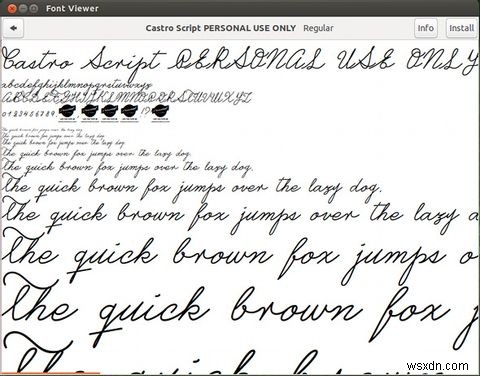 Font Viewer
Castro Script PERSONAL USE ONLY Regular Info Install
Castro Script PERSONAL USE ONLY
abcdefghijklmnopqrstuvwxyz
ABCDEFGHIJKLMNOPQRSTUVWXYZ
0123456789. !?
The quick brown fox jumps over the lazy dog.
The quick brown fox jumps over the lazy dog.
The quick brown fox jumps over the lazy dog.
The quick brown fox jumps over the lazy dog.
The quick brown fox jumps over the lazy dog.
The quick brown fox jumps over the lazy dog.
The quick brown fox jumps over the lazy d
The quick brown fox jumps o
The quick brown fox j
The quick brown
wsxdn.com